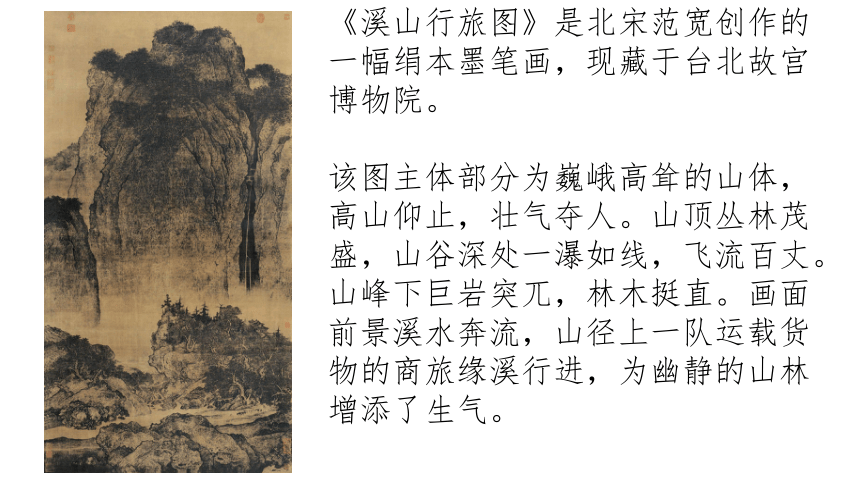 《溪山行旅图》是北宋范宽创作的
一幅绢本墨笔画，现藏于台北故宫
博物院。
该图主体部分为巍峨高耸的山体，
高山仰止，壮气夺人。山顶丛林茂
盛，山谷深处一瀑如线，飞流百丈。
山峰下巨岩突兀，林木挺直。画面
前景溪水奔流，山径上一队运载货
物的商旅缘溪行进，为幽静的山林
增添了生气。